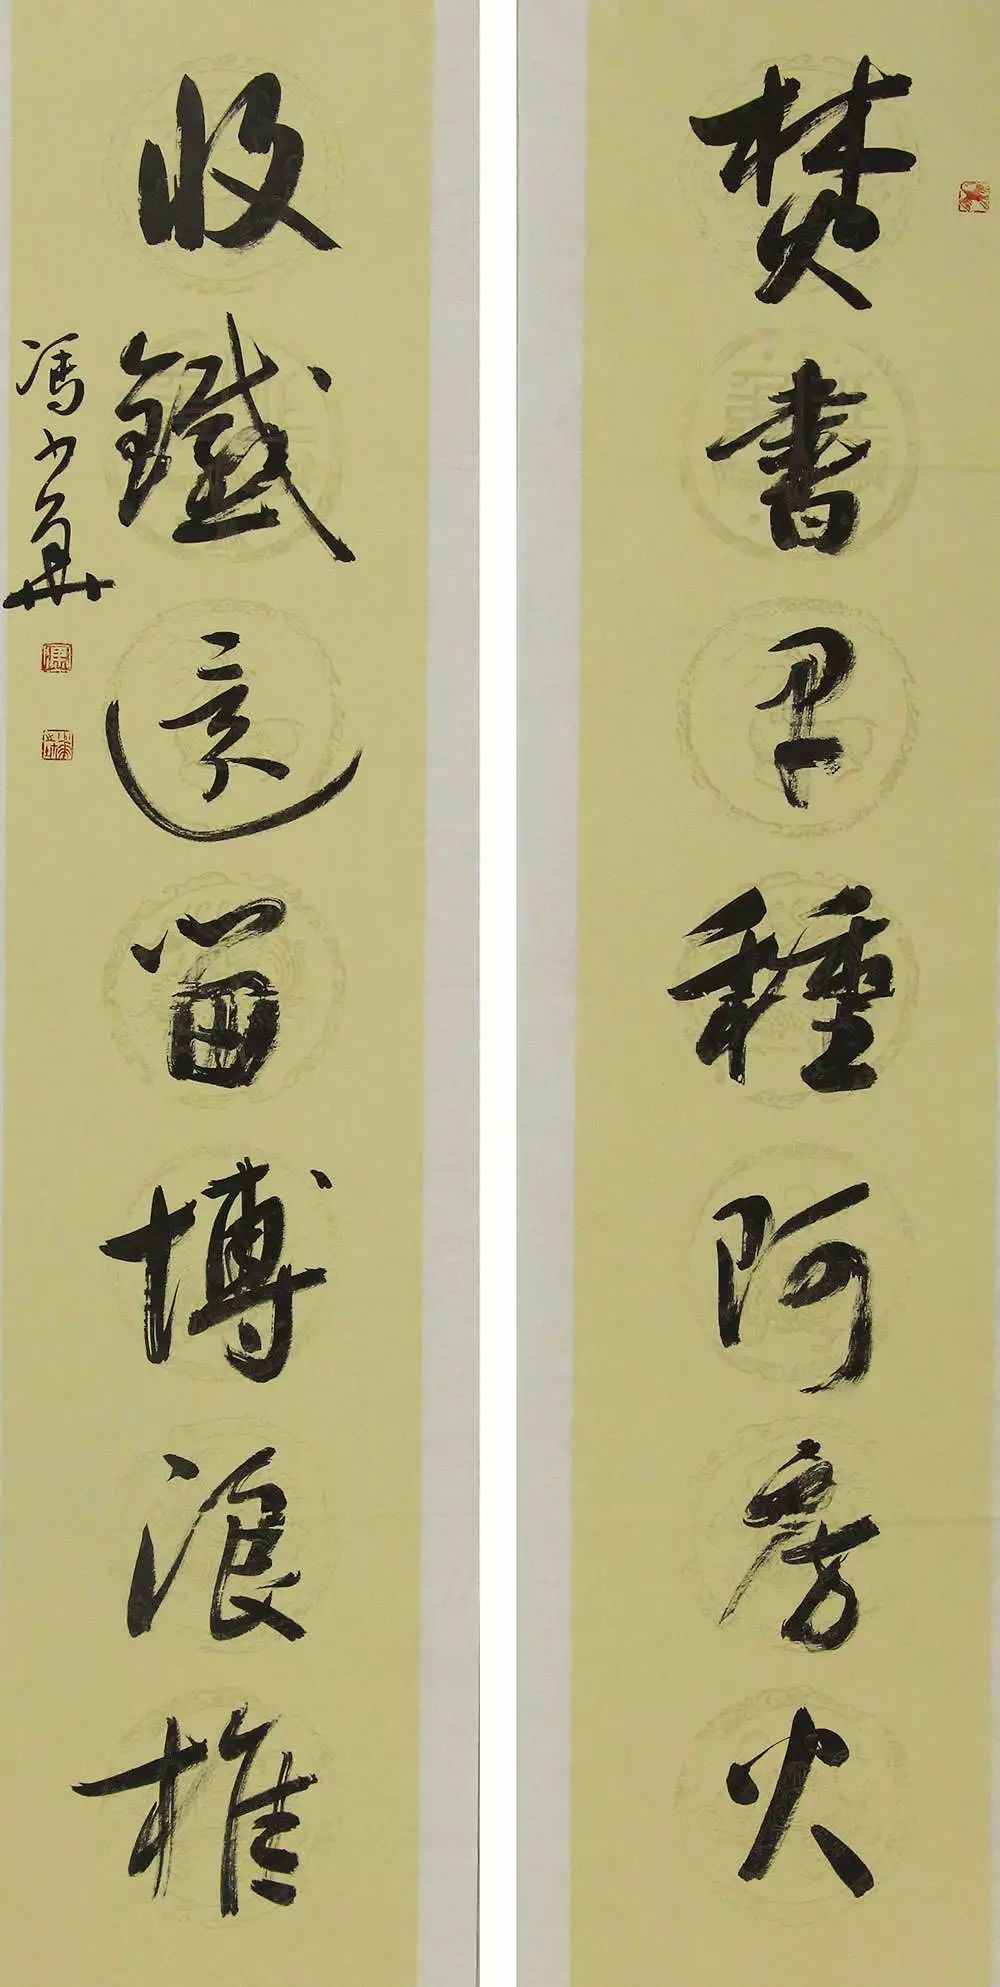 焚書早種阿房火
收鐵還留博浪椎
馮少華